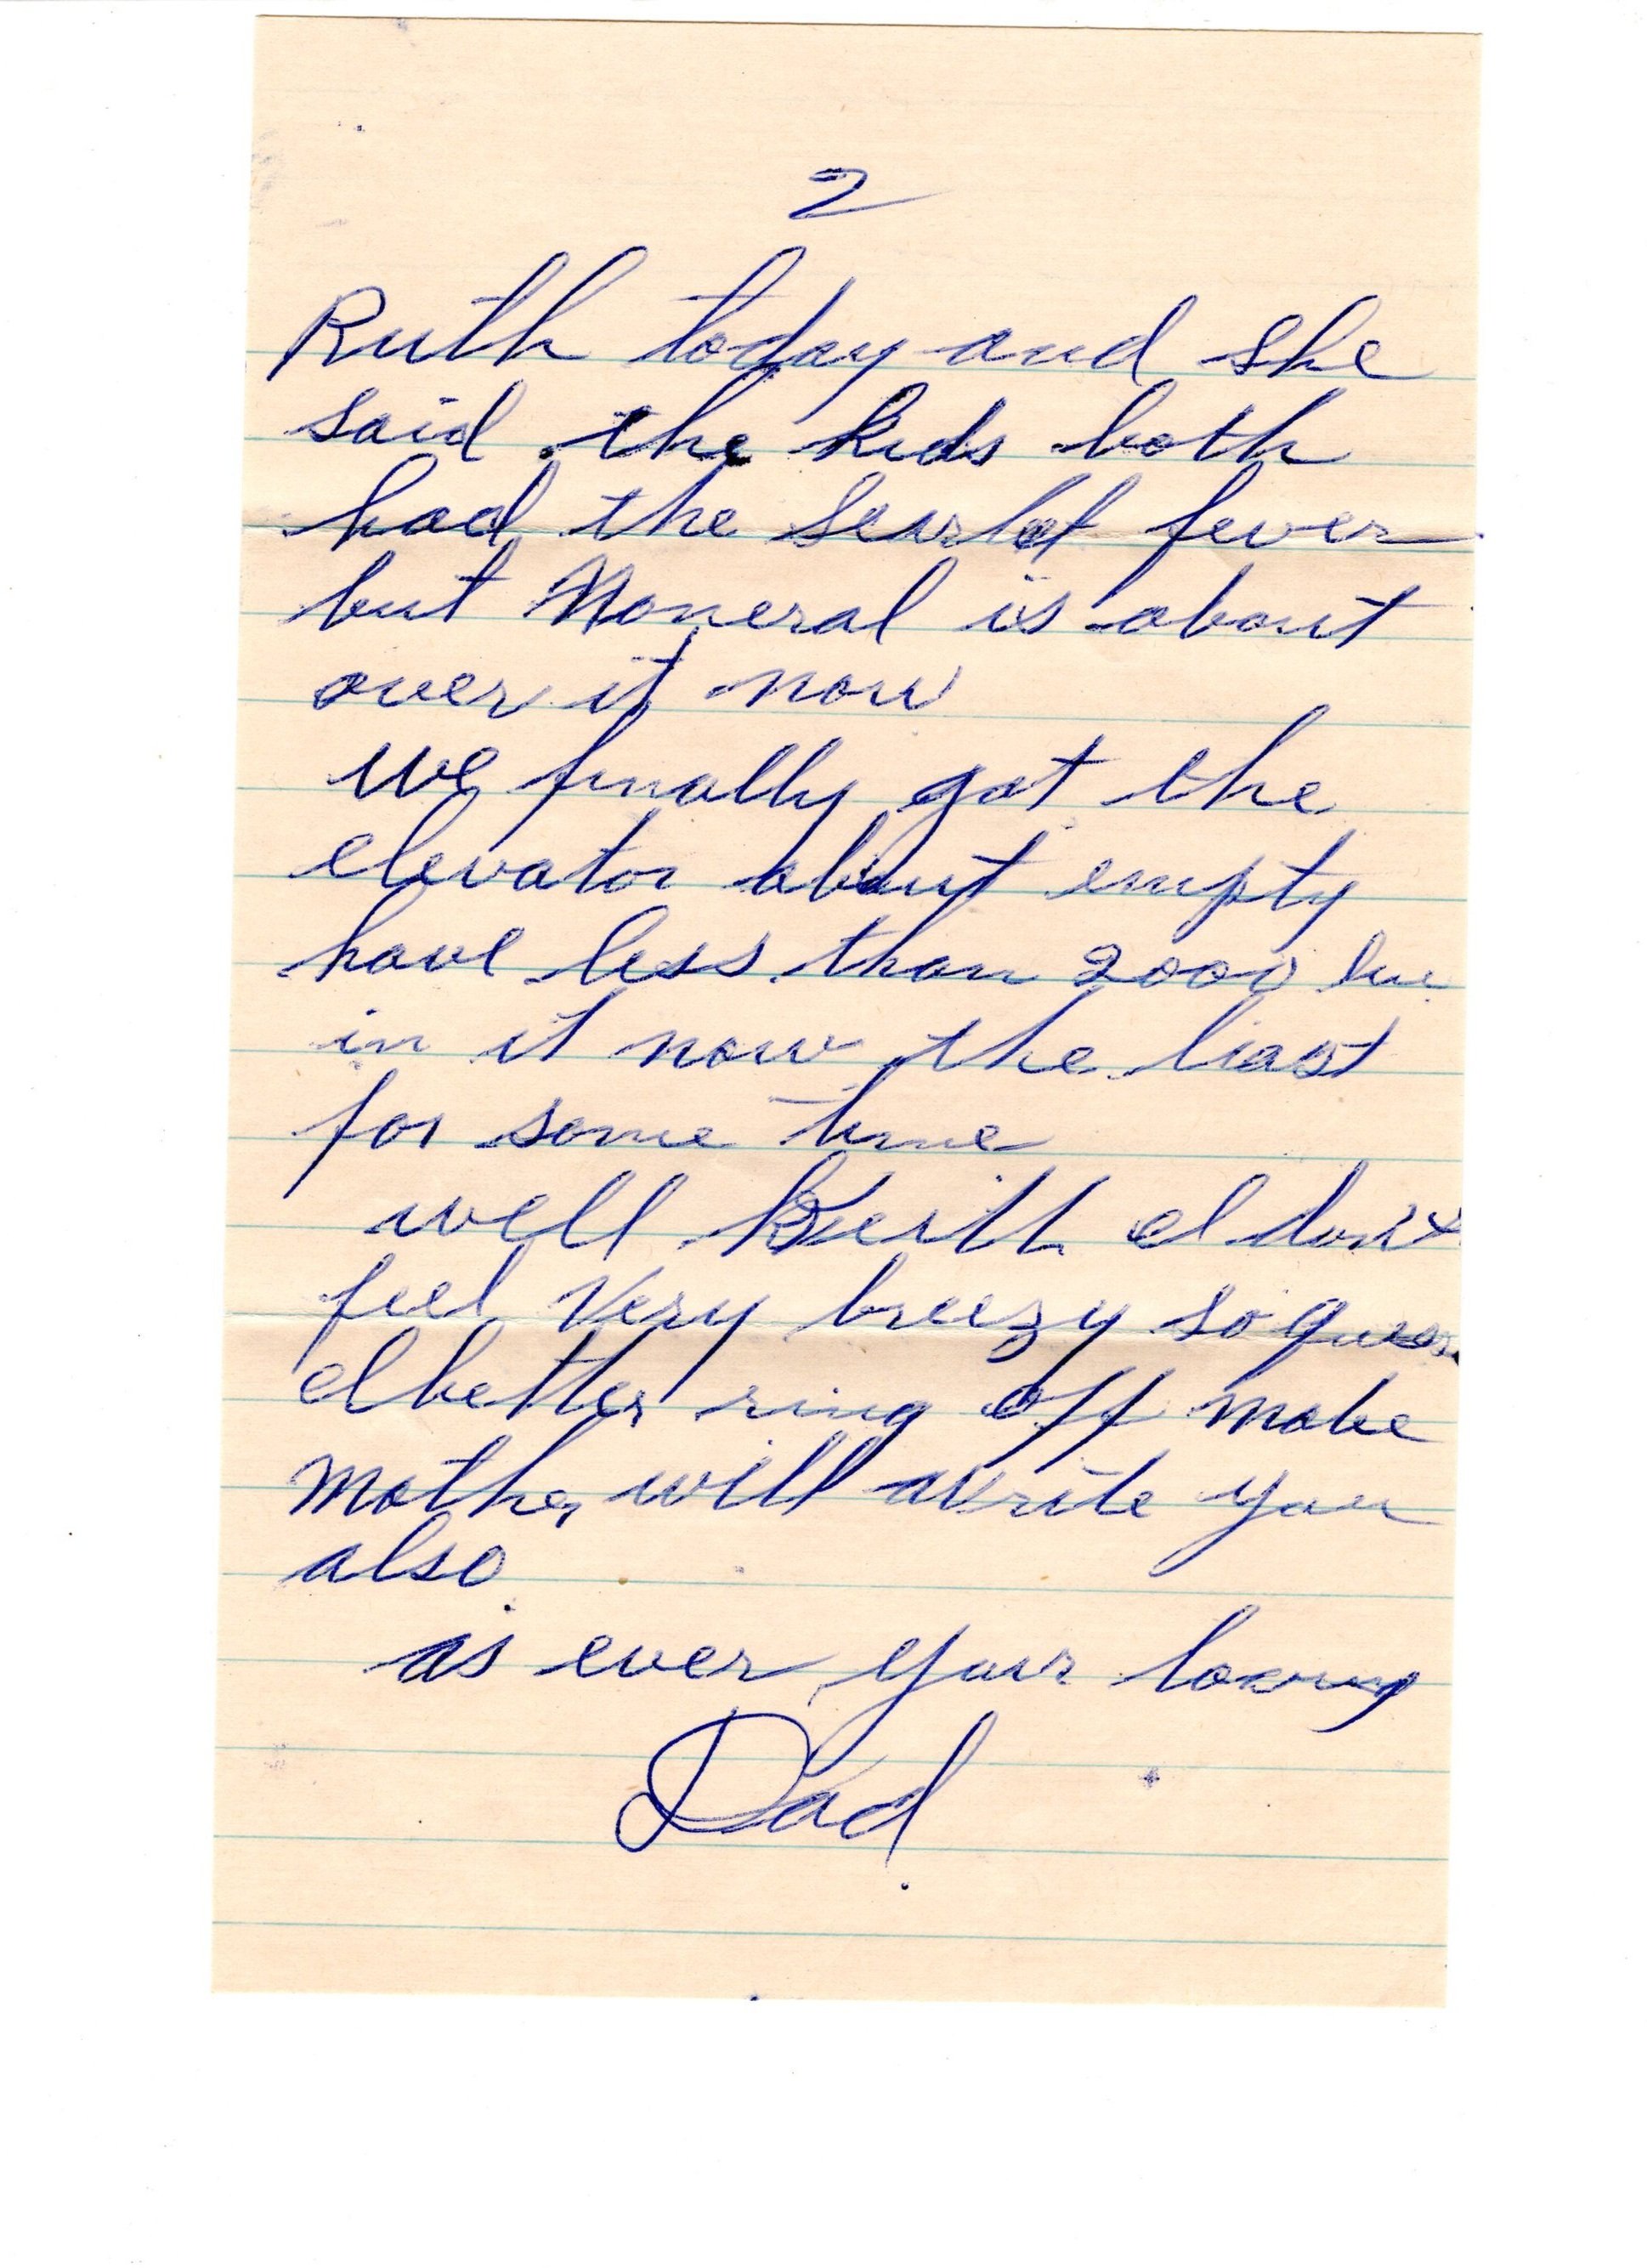 2
Ruth today and she
said the kids both
had the Scarlet fever
but Moneral is about
over it now
we finally got the
elevator about empty
have less than 2000 bu
in it now the least
for some time
well Keith I don't
feel very breezy so guess
I better ring off mabe
Mother will write you
also
as ever your loving
Dad